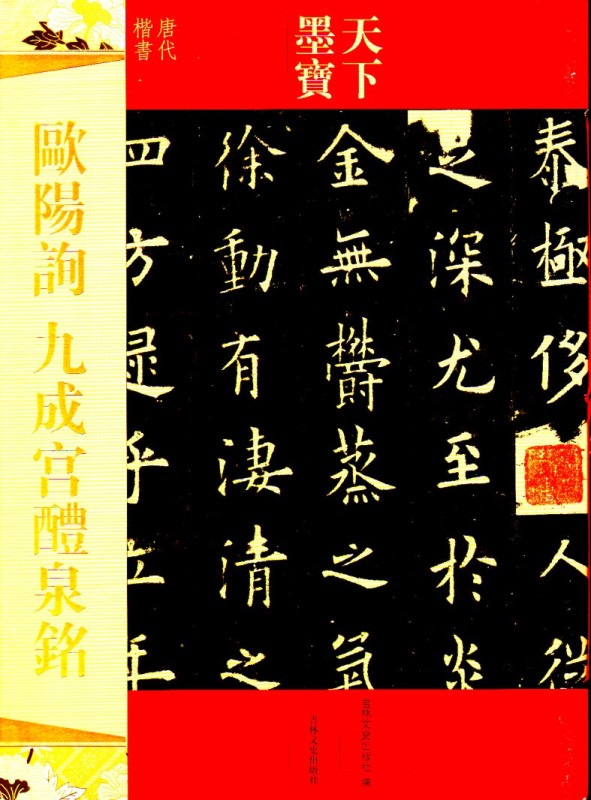 天下
墨寶
唐代
楷書
歐陽詢 九成宫醴泉銘
泰極侈人從
之深尤至於炎
金無鬱蒸之氣
徐動有淒清之
四方逮乎立年
吉林文史出版社 編
吉林文史出版社